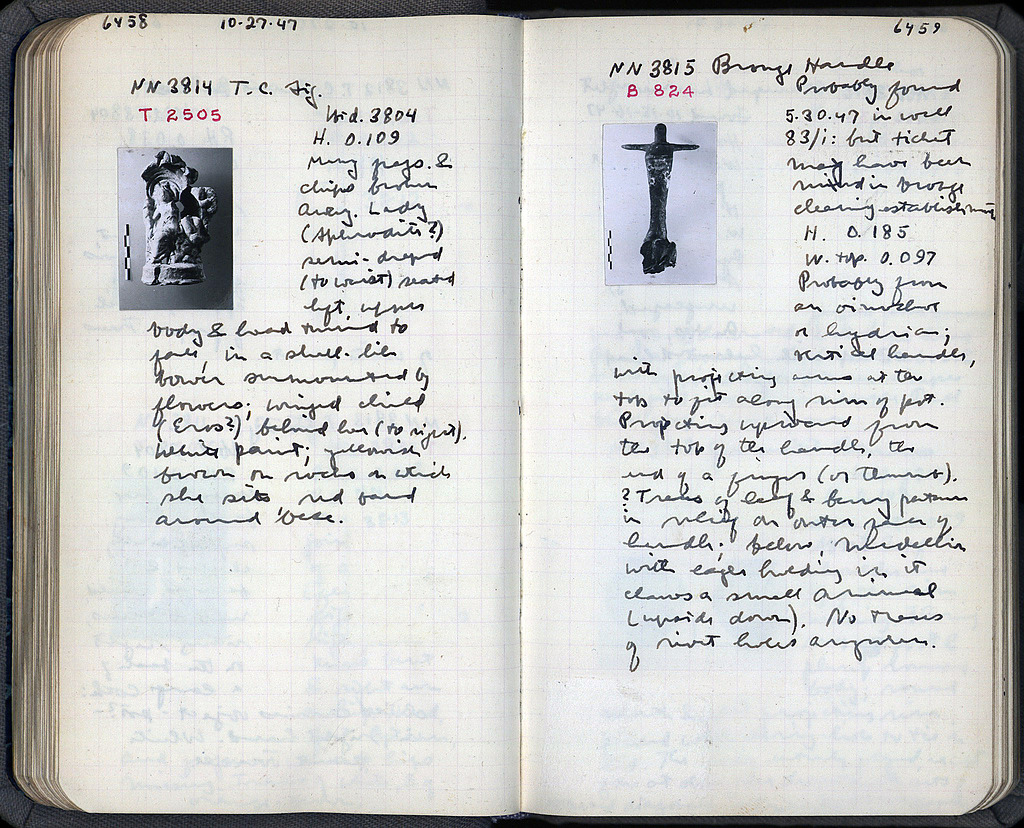 6458 10-27-47
NN 3814 T.C. Fig.
T 2505
Wid. 3804
H. 0.109
Many frags. &
chips broken
away. Lady
(Aphrodite?)
semi-draped
(to waist) seated
left, upper
body & head turned to
face, in a shell-like
bower surmounted by
flowers; winged child
(Eros?) behind her (to right).
White paint; yellowish
brown on rocks on which
she sits red band
around base.
6459
NN 3815 Bronze Handle
B 824
Probably found
5.30.47 in well
83/1: but ticket
may have been
mixed in bronze
cleaning establishment
H. 0.185
W. top. 0.097
Probably from
an oinochoe
or hydria;
vertical handle,
with projecting arms at the
top to fit along rim of pot.
Projecting upward from
the top of the handle, the
end of a finger (or thumb).
? Traces of leaf & berry pattern
in relief on outer face of
handle; below, medallion
with eagle holding in its
claws a small animal
(upside down). No traces
of rivet holes anywhere.